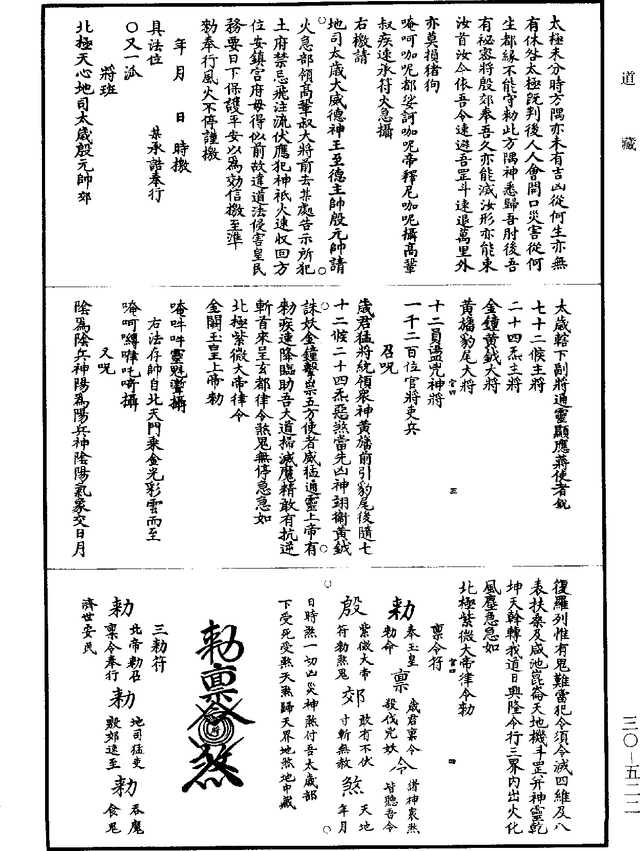 道藏
太極未分時方隅亦未有吉凶從何生亦無
有休咎太極既判後人人會開口災害從何
生都緣不能守勅此方隅神悉歸吾肘後吾
有秘密將殷郊奉吾久亦能滅汝形亦能束
汝首汝今依吾令速避吾罡斗速退萬里外
亦莫損猪狗
唵呵咖呢都娑訶咖呢帝釋尼咖呢攝高鞏
叔疾速承符火急攝
右檄請
地司太歲大威德神王至德主帥殷元帥請
火急部領高鞏叔大將前去某處告示所犯
土府禁忌飛注流伏應犯神祇火速收回方
位安鎮宮府毋得似前故違道法侵害皇民
務要日下保護平安以爲効信檄至準
勅奉行風火不停謹檄
年月日時檄
具法位某承誥奉行
又一派
將班
北極天心地司太歲殷元帥郊
太歲轄下副將通靈顯應蔣使者銳
七十二候主將
二十四炁主將
金鐘黃鉞大將
黃旛豹尾大將
十二員盪兇神將
一千二百位官將吏兵
召呪
歲君猛將統領衆神黃旛前引豹尾後隨七
十二候二十四炁惡煞當先凶神翊衛黃鉞
誅妖金鐘擊祟五方使者威猛通靈上帝有
勅疾速降臨助吾大道掃滅魔精敢有抗逆
斬首來呈玄都律令煞鬼無停急急如
北極紫微大帝律令
金闕玉皇上帝勅
唵吽吽靈魁𩆷攝
右法存帥自北天門乘金光彩雲而至
唵呵囀㗚吒𠺁攝
又呪
陰爲陰兵神陽爲陽兵神陰陽氣象交日月
復羅列惟有鬼難當犯令須令滅四維及八
表扶桑及咸池崑崙天地機斗罡并神靈乾
坤天幹轉我道日興隆令行三界內出火化
風塵急急如
北極紫微大帝律令勅
稟令符
勅 奉玉皇勅命 稟 歲君稟令殺伐兇妖 令 諸神衆煞皆聽吾令
殷 紫微大帝符勅煞鬼 郊 敢有不伏寸斬無赦 煞 天地年月
日時煞一切凶災神煞付吾太歲部
下受死受煞天煞歸天界地煞地中藏
勅稟令煞
三勅符
勅 北帝勅召稟令奉行 勅 地司猛吏殷郊速至 勅 吞魔食鬼
濟世安民
三〇—五二二